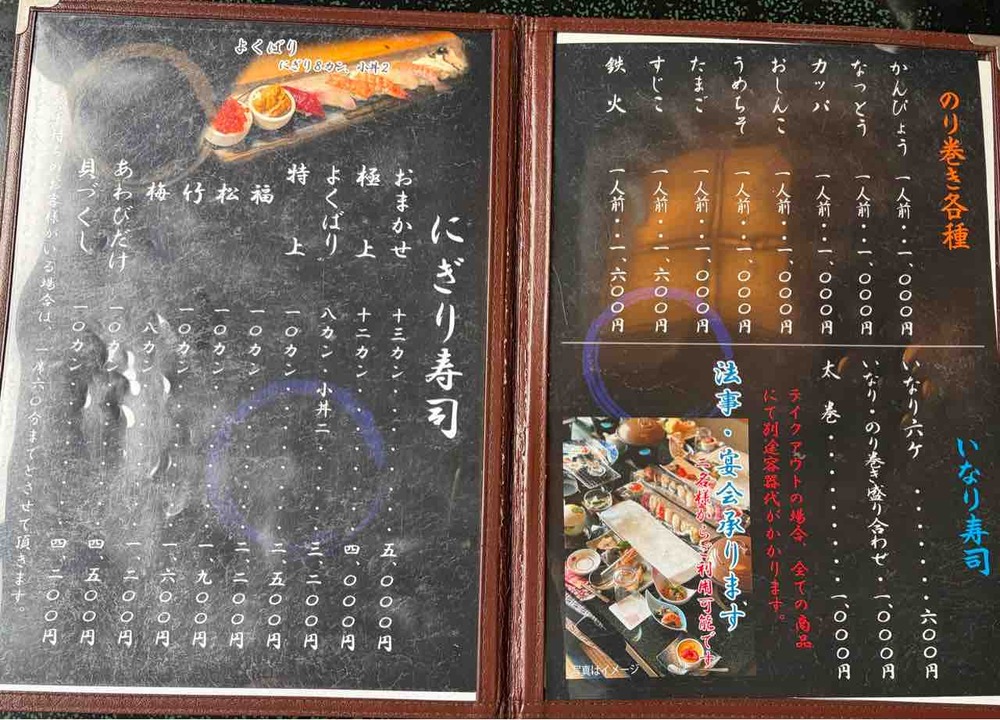 のり巻き各種
かんぴょう 一人前・・一、〇〇〇円
なっとう 一人前・・一、〇〇〇円
カッパ 一人前・・一、〇〇〇円
おしんこ 一人前・・一、〇〇〇円
うめちそ 一人前・・一、〇〇〇円
たまご 一人前・・一、〇〇〇円
すじこ 一人前・・一、六〇〇円
鉄火 一人前・・一、六〇〇円
いなり寿司
いなり六ケ・・・・・・・六〇〇円
いなり・のり巻き盛り合わせ・一、〇〇〇円
太巻・・・・・・・・一、〇〇〇円
テイクアウトの場合、全ての商品
にて別途容器代がかかります。
法事・宴会承ります
二名様からご利用可能です
写真はイメージ
よくばり
にぎり8カン、小丼2
にぎり寿司
おまかせ 十三カン・・・・・五、〇〇〇円
極上 十二カン・・・・・四、〇〇〇円
よくばり 八カン、小丼二・・・三、二〇〇円
特上 一〇カン・・・・・二、五〇〇円
福 一〇カン・・・・・二、二〇〇円
松 一〇カン・・・・・一、九〇〇円
竹 一〇カン・・・・・一、六〇〇円
梅 八カン・・・・・一、二〇〇円
あわびだけ 一〇カン・・・・・四、五〇〇円
貝づくし 一〇カン・・・・・四、二〇〇円
のお客様がいる場合は、六〇分までとさせて頂きます。